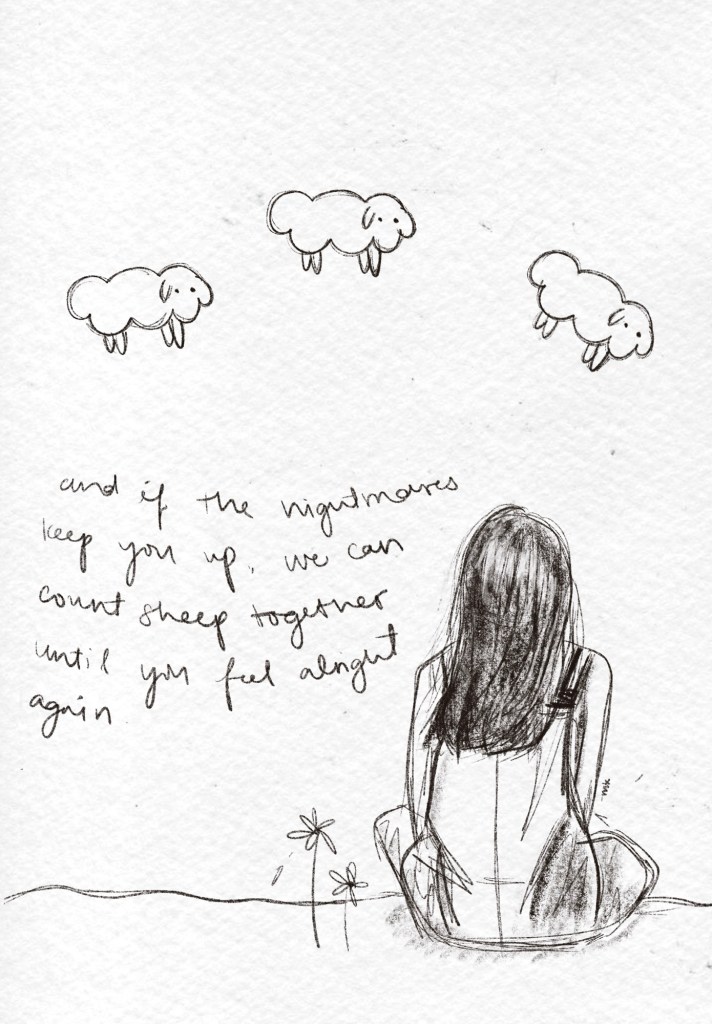 and if the nightmares
keep you up, we can
count sheep together
until you feel alright
again
mk